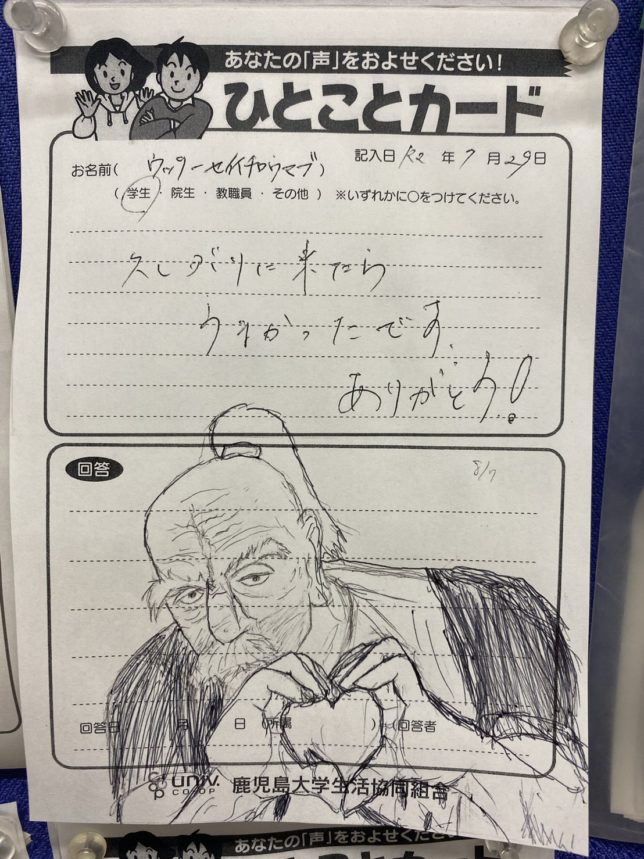 あなたの「声」をおよせください！
ひとことカード
お名前( ウッターセイイチロウマブ)
記入日 R2 年 7 月 29日
( 学生 ・ 院生 ・ 教職員 ・ その他 ) ※いずれかに○をつけてください。
久しぶりに来たら
うれかったです。
ありがとう！
回答
8/7
回答日 月 日 (所属 ) (回答者
univ. CO・OP 鹿児島大学生活協同組合
あなたの「声」をおよせくださ